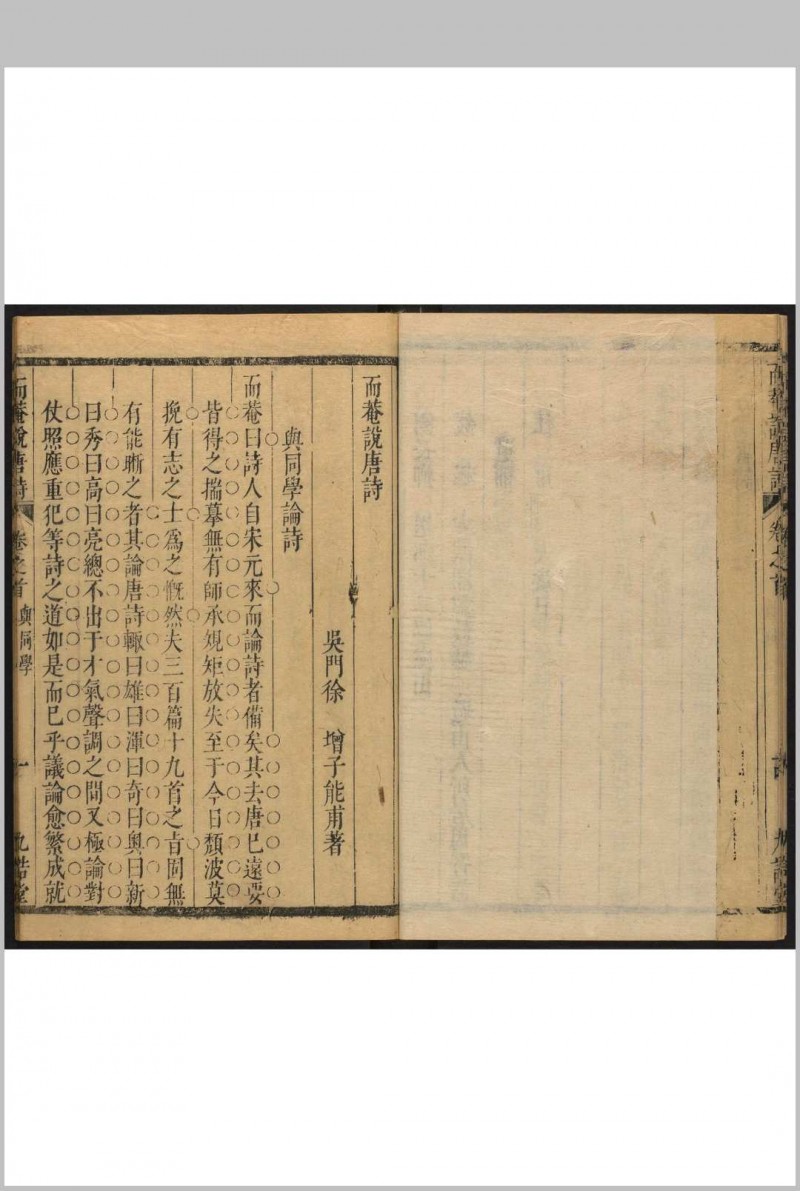 而菴說唐詩
吳門徐　增子能甫著
與同學論詩
而菴曰詩人自宋元來而論詩者備矣其去唐已遠要
皆得之揣摹無有師承規矩放失至于今日頹波莫
挽有志之士爲之慨然夫三百篇十九首之旨固無
有能晰之者其論唐詩輙曰雄曰渾曰奇曰奥曰新
曰秀曰高曰亮總不出于才氣聲調之間又極論對
仗照應重犯等詩之道如是而已乎議論愈繁成就
而菴說唐詩　卷之首　與同學　一　九誥堂